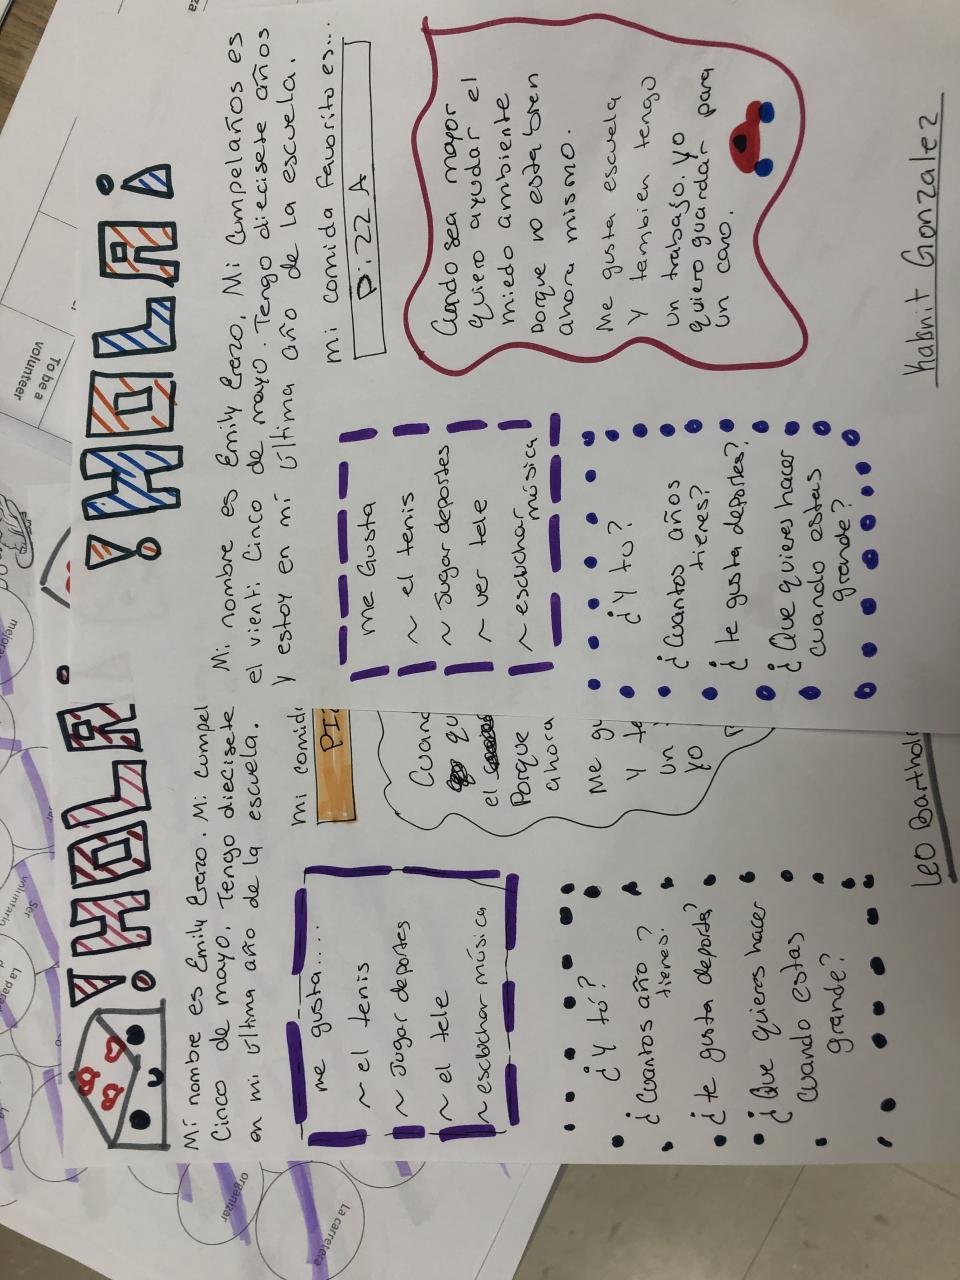 ¡HOLA!
Mi nombre es Emily Erazo, Mi cumpelaños es
el vienti cinco de mayo. Tengo diecisete años
y estoy en mi última año de la escuela.
mi comida favorito es...
PiZZA
me Gusta
~ el tenis
~ Jugar deportes
~ ver tele
~ escuchar
música
Cuando sea mayor
quiero ayudar el
miedo ambiente
porque no esta bien
ahora mismo.
Me gusta escuela
Y tembien tengo
un trabajo. yo
quiero guardar para
un caro.
¿Y tu?
¿Cuantos años
tienes?
¿te gusta deportes?
¿Que quieres hacer
cuando estas
grande?
Kabnit Gonzalez
¡HOLA!
Mi nombre es Emily Erazo. Mi cumpel
Cinco de mayo. Tengo diecisete
en mi última año de la escuela.
mi comid
PI
me gusta...
~ el tenis
~ Jugar deportes
~ el tele
~ escuchar música
Cuand
qu
el
Porque
ahora
Me gu
Y te
un
yo
¿Y tú?
¿Cuantos año ?
tienes.
¿te gusta deporte?
¿Que quieres hacer
cuando estas
grande?
Leo Barthol
To be a
volunteer
mejora
Ser
voluntario
La para
organizar
La carretera